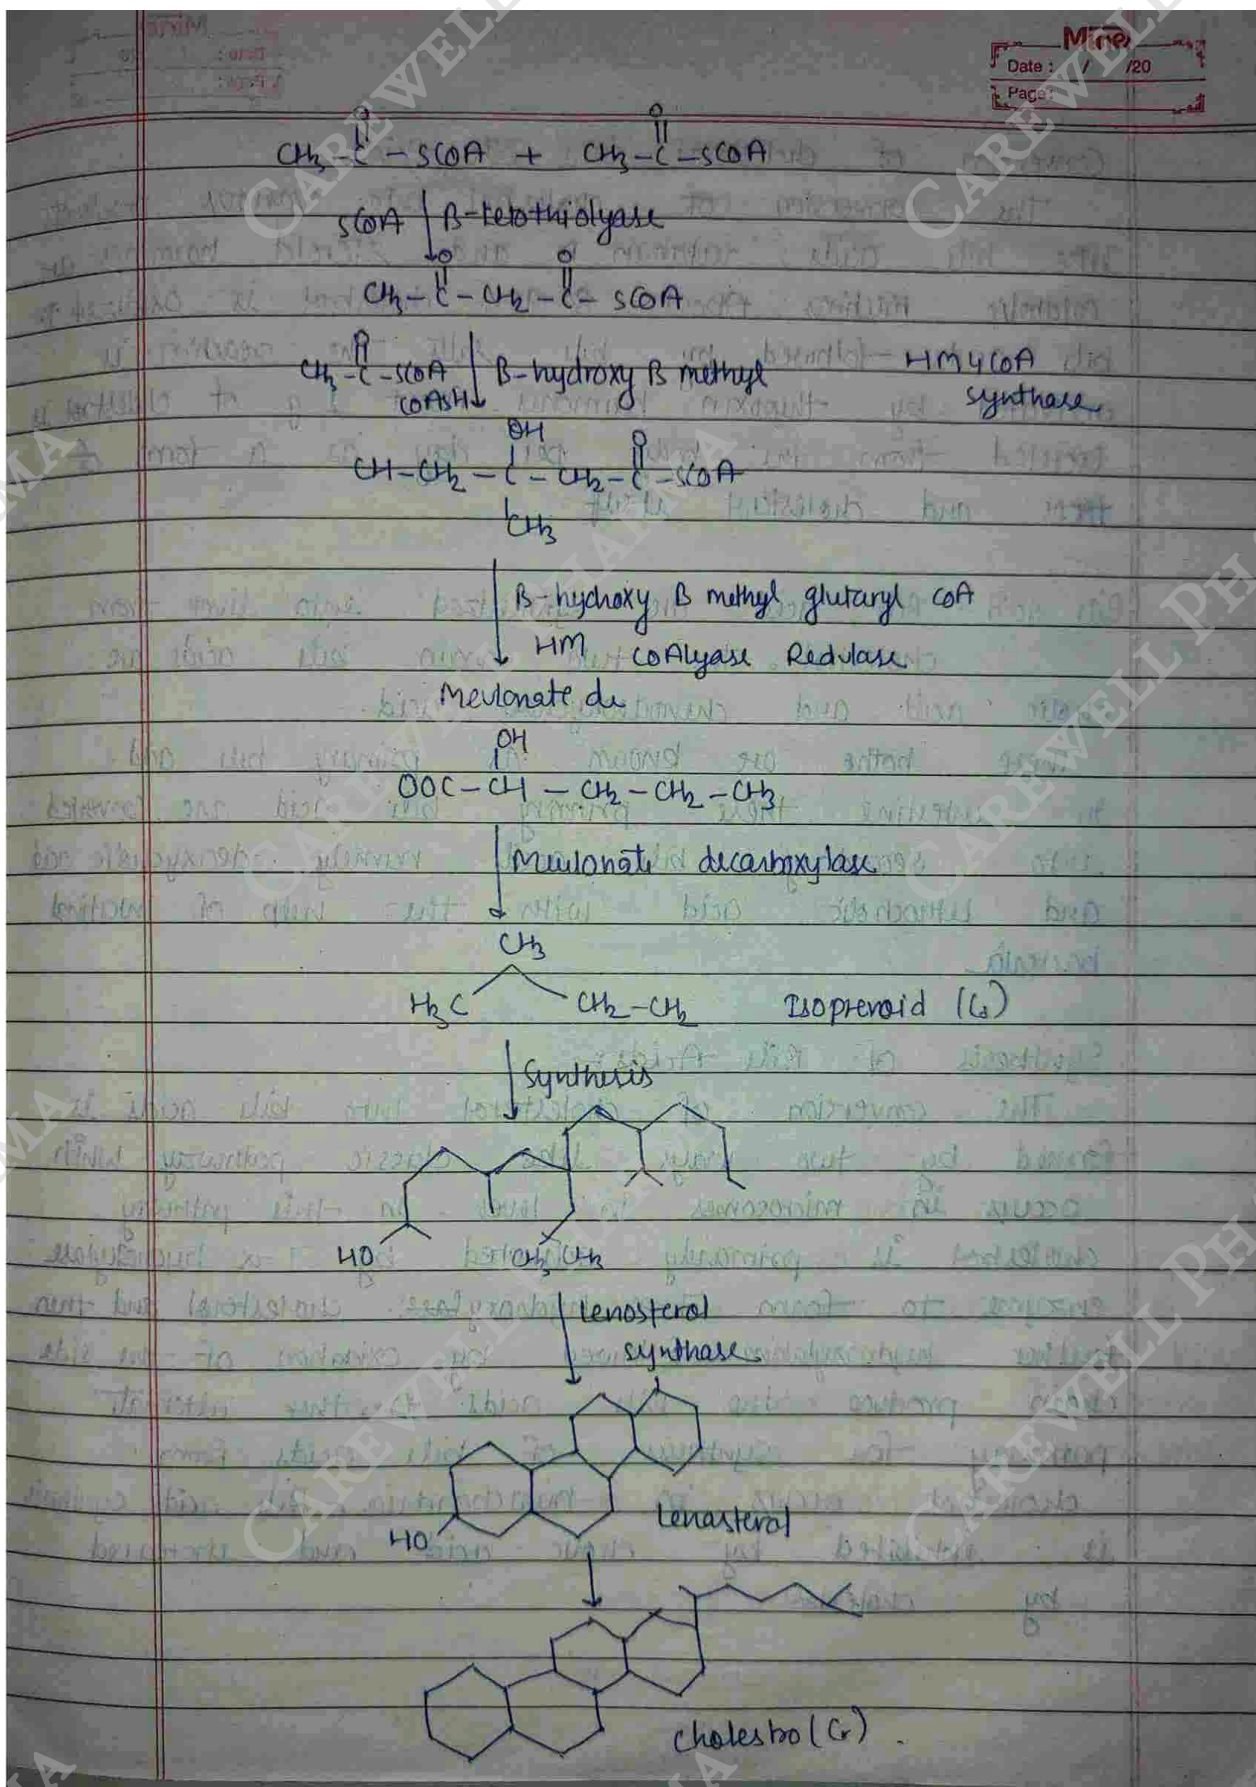 Mine
Date : / /20
Page:
O O
CH3-C-SCOA + CH3-C-SCOA
SCOA β-ketothiolyase
O O
CH3-C-CH2-C-SCOA
O
CH3-C-SCOA β-hydroxy β methyl HM4COA
COASH synthase
OH O
CH-CH2-C-CH2-C-SCOA
CH3
β-hychoxy β methyl glutaryl COA
HM COAlyase Redulase
Mevlonate de
OH
OOC-CH-CH2-CH2-CH3
Mevlonate decarboxylase
CH3
H3C CH2-CH2 Isoprenoid (C5)
Synthesis
HO CH3 CH3
Lenosterol
synthase
HO Lenasterol
cholestro (
CAREWELL PHARMA